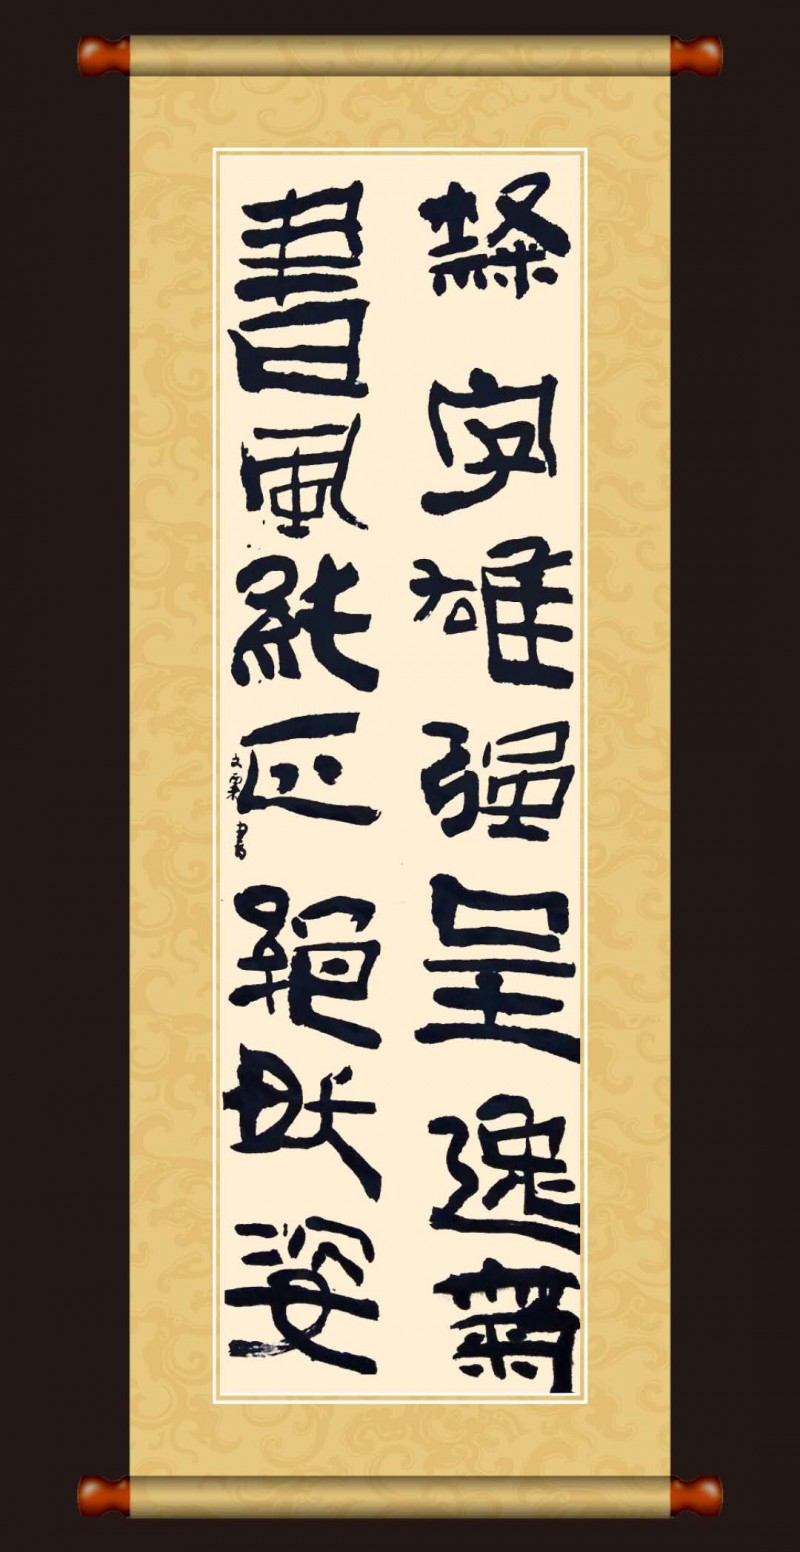 隸字雄强呈逸氣
書風純正絕妖姿
文書